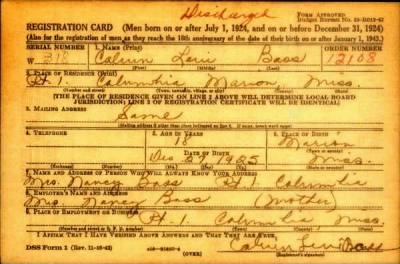 Discharged
Form Approved
REGISTRATION CARD (Men born on or after July 1, 1924, and on or before December 31, 1924)
(Also for the registration of men as they reach the 18th anniversary of the date of their birth on or after January 1, 1943.)
SERIAL NUMBER 1. NAME (Print) ORDER NUMBER
W 318 Calvin Bass 12108
2. PLACE OF RESIDENCE (Print)
Rt. 1 Columbia Marion Miss.
(THE PLACE OF RESIDENCE GIVEN ON LINE 2 ABOVE WILL DETERMINE LOCAL BOARD
JURISDICTION; LINE 2 OF REGISTRATION CERTIFICATE WILL BE IDENTICAL)
3. MAILING ADDRESS
Same
4. TELEPHONE 5. AGE IN YEARS 6. PLACE OF BIRTH
18 Marion
DATE OF BIRTH
Dec 27 1925 Miss.
7. NAME AND ADDRESS OF PERSON WHO WILL ALWAYS KNOW YOUR ADDRESS
Mrs. Nancy Bass Rt. 1 Columbia
8. EMPLOYER'S NAME AND ADDRESS
Mrs. Nancy Bass (Mother)
9. PLACE OF EMPLOYMENT OR BUSINESS
Rt-1 Columbia Miss.
I AFFIRM THAT I HAVE VERIFIED ABOVE ANSWERS AND THAT THEY ARE TRUE.
DSS Form 1 (Rev. 11-16-42) (OVER) Calvin Bass
(Registrant's signature)